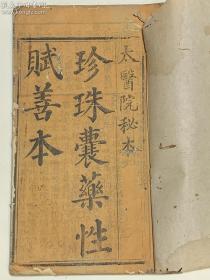 太醫院秘本
珍珠囊藥性
賦善本